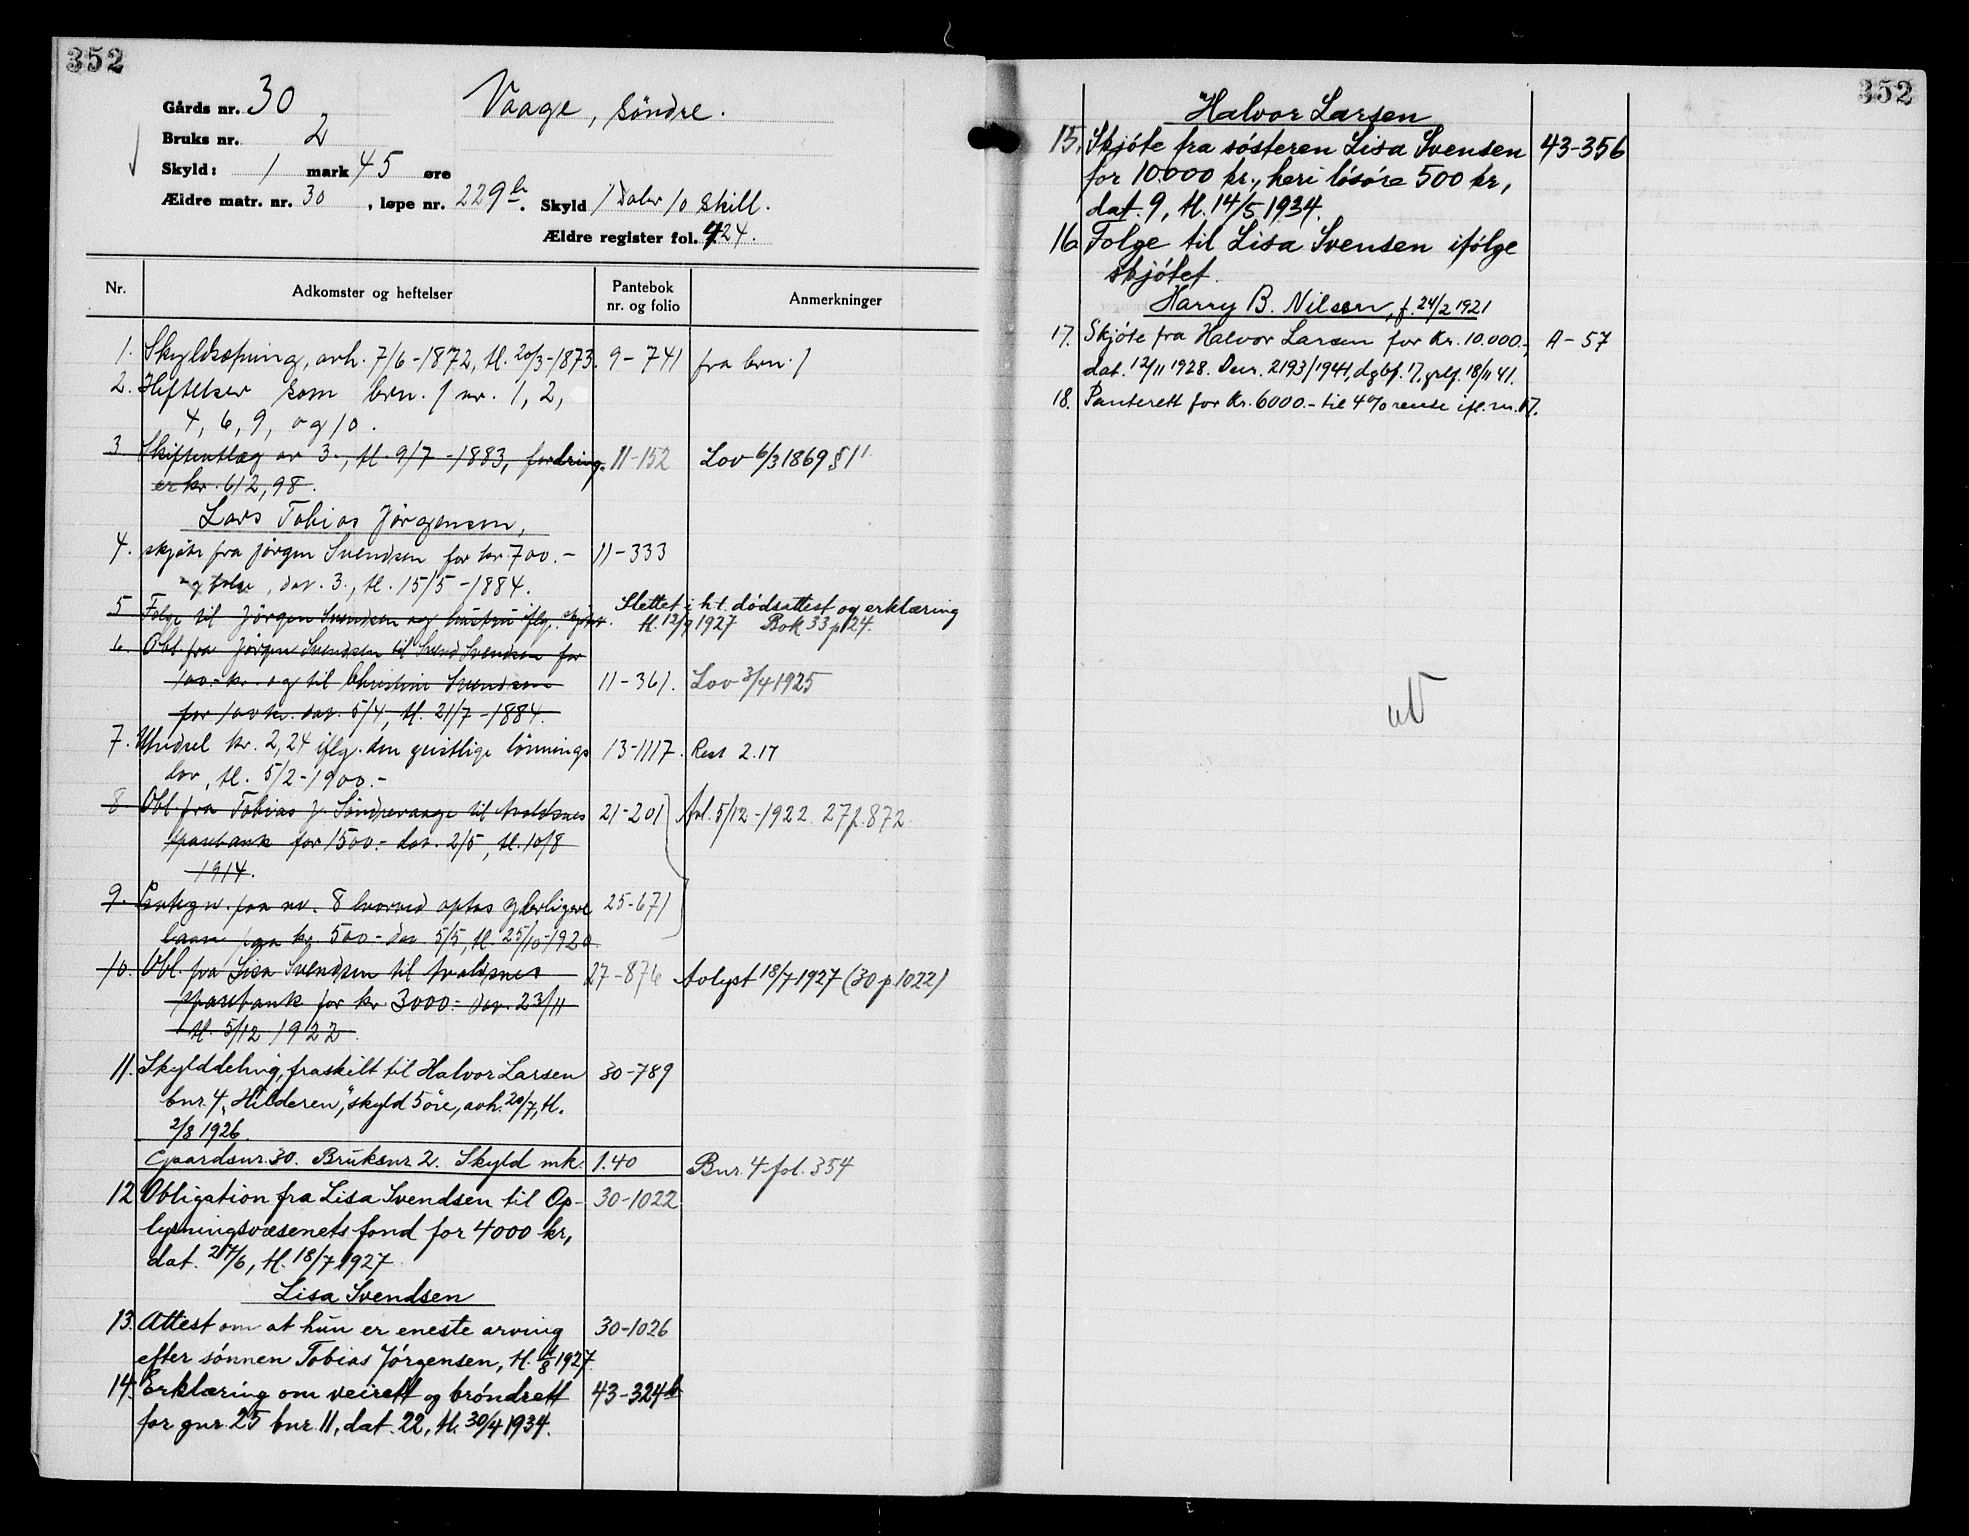 352
Gårds nr. 30 Vaage, söndre.
Bruks nr. 2
Skyld: 1 mark 45 øre
Ældre matr. nr. 30, løpe nr. 229 b. Skyld 1 Daler 10 Skill.
Ældre register fol. 424.
Nr. Adkomster og heftelser Pantebok nr. og folio Anmerkninger
1. Skyldsætning, avh. 7/6-1872, tl. 20/3-1873. 9-741 fra brn. 1
2. Heftelser som brn. 1 nr. 1, 2,
4, 6, 9, og 10.
3 Skifteutlæg av 3., tl. 9/7-1883, fordring- 11-152 Lov 6/3 1869 § 11
er kr. 612,98.
Lars Tobias Jörgensen,
4. skjöte fra Jörgen Svendsen for kr. 700.- 11-333
og folge, dat. 3., tl. 15/5-1884.
5 Folge til Jörgen Svendsen og hustru iflg. skjöte. Slettet i h.t. dódsattest og erklæring
tl. 12/9 1927 Bok 33 p 124.
6. Obl fra Jörgen Svendsen til Svend Svendsen for
100.- kr. og til Christine Svendsen 11-361. Lov 3/4 1925
for 100 kr. dat. 5/4, tl. 21/7-1884.
7. Utredsel kr. 2,24 iflg. den geistlige lönnings 13-1117. Rest 2.17
lov, tl. 5/2-1900.-
8. Obl. fra Tobias J. Söndrevaage til Avaldsnes 21-201 Avl. 5/12-1922. 27 p. 872.
sparebank for 1500.- dat. 2/5, tl. 10/8
1914.
9. Paategn. paa nr. 8 hvorved optas yderligere 25-671
laan paa kr. 500- dat. 5/5, tl. 25/10-1920.
10. Obl. fra Lisa Svendsen til Avaldsnes 27-876 Avlyst 18/7 1927 (30 p. 1022)
sparebank for kr 3000.- dat. 23/11
tl. 5/12 1922.
11. Skylddeling, fraskilt til Halvor Larsen 30-789
bnr. 4, "Hilderen", skyld 5 öre, avh. 20/7, tl.
2/8 1926.
Gaardsnr. 30. Bruksnr. 2. Skyld mk. 1.40 Bnr. 4 fol. 354
12 Obligation fra Lisa Svendsen til Op- 30-1022
lysningsvæsenets fond for 4000 kr,
dat. 27/6, tl. 18/7 1927
Lisa Svendsen
13. Attest om at hun er eneste arving 30-1026
efter sónnen Tobias Jórgensen, tl. 1/8 1927.
14. Erklæring om veirett og bróndrett 43-324b
for gnr. 25 bnr. 11, dat. 22, tl. 30/4 1934.
352
Halvor Larsen
15. Skjóte fra sósteren Lisa Svensen 43-356
for 10.000 kr., heri lósóre 500 kr,
dat. 9, tl. 14/5 1934.
16 Folge til Lisa Svensen ifólge
skjótet.
Harry B. Nilsen, f. 24/2 1921
17. Skjöte fra Halvor Larsen for kr. 10.000.-, A-57
dat. 12/11 1928. Dnr. 2193/1941, dgbf. 17, grlf. 18/11 41.
18. Panterett for kr. 6000.- til 4% rente ifl. nr. 17.